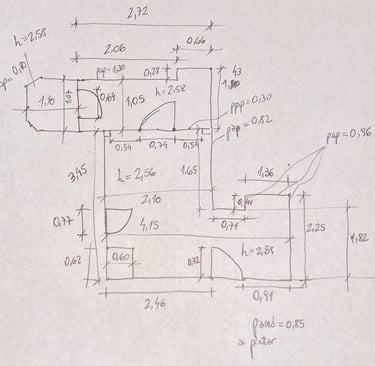 2,72
h=2,58
2.06
0.66
1,10
1.07
0,64
1,05
0,28
h=2,58
ppp=0,30
pap=0,82
0,54
0,74
0,54
pap=0,86
3,45
h=2,56
1.65
2,10
1,36
0,41
0,77
4,15
0,71
2,25
1,82
0,62
0,60
0,72
h=2,58
2,46
0,91
pared=0,85
a pintar